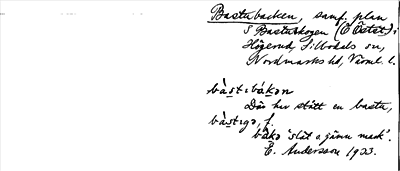 Bastubacken, samf. plan
S Bastuskogen (Ö Östet) i
Högerud, Sillbodals sn,
Nordmarks hd, Värml. l.
bàstɩbákən
Där har stått en bastu,
bàstɩgə, f.
bákə 'slät o. jämn mark'.
E. Andersson 1933.